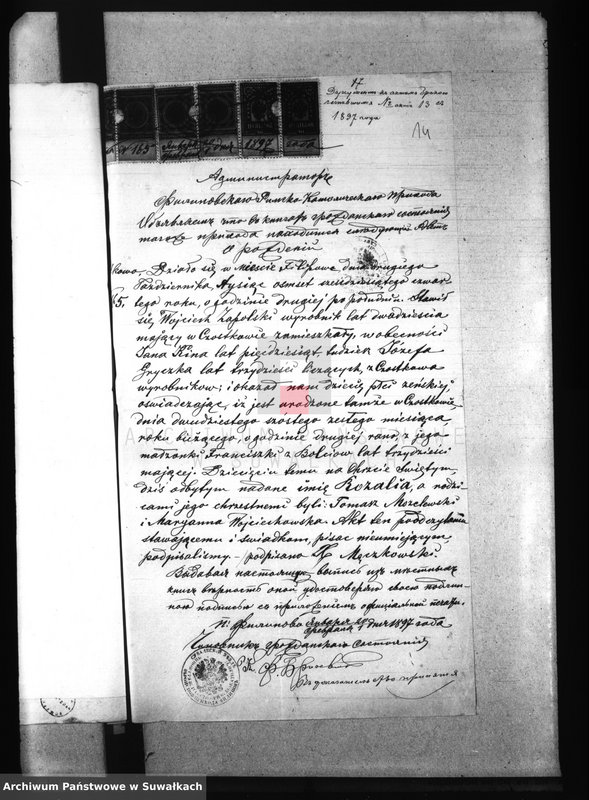 17
Документъ къ актамъ брако
сочетавшихся № акта 13 съ
1897 года
14
№ 165 Января 1897 года
Администраторъ
Филиповскаго Римско Католическаго Прихода
Объявляетъ что въ книгахъ гражданскаго состоянія
того прихода находится слѣдующій Актъ
о рожденіи
Działo się w mieście Filipowe dnia drugiego
Października, tysiąc ośmset sześdziesiątego czwar
5, tego roku, o godzinie drugiej po południu. Stawił
się Wojciech Zapolski wyrobnik lat dwadzieścia
mający w Czostkowie zamieszkały, w obecności
Jana Kina lat pięćdziesiąt, tudzież Józefa
Gryczka lat trzydzieści liczących, z Czostkowa
wyrobników; i okazał nam dziecię płci żeńskiej
oświadczając, iż jest urodzone tamże w Czostkowie,
dnia dwudziestego szóstego zeszłego miesiąca
roku bieżącego, o godzinie drugiej rano, z jego
małżonki Franciszki z Bolciow lat trzydzieści
mającej. Dziecięciu temu na Chrzcie świętym,
dziś odbytym nadane imię Rozalia, a rodzi
cami jego chrzestnemi byli: Tomasz Mozelewski
i Maryanna Wojciechowska. Akt ten podczytaniu
stawającemu i świadkom, pisać nieumiejącym
podpisaliśmy. – podpisano X Męczkowski
Выдавая настоящую выпись изъ мѣстныхъ
книгъ вѣрность оной удостовѣряю своею подпи-
сью съ приложеніемъ оффиціальной печати.
П. Филипово Января Февраля дня 1897 года
Чиновникъ гражданскаго Состоянія
Archiwum Państwowe w Suwałkach